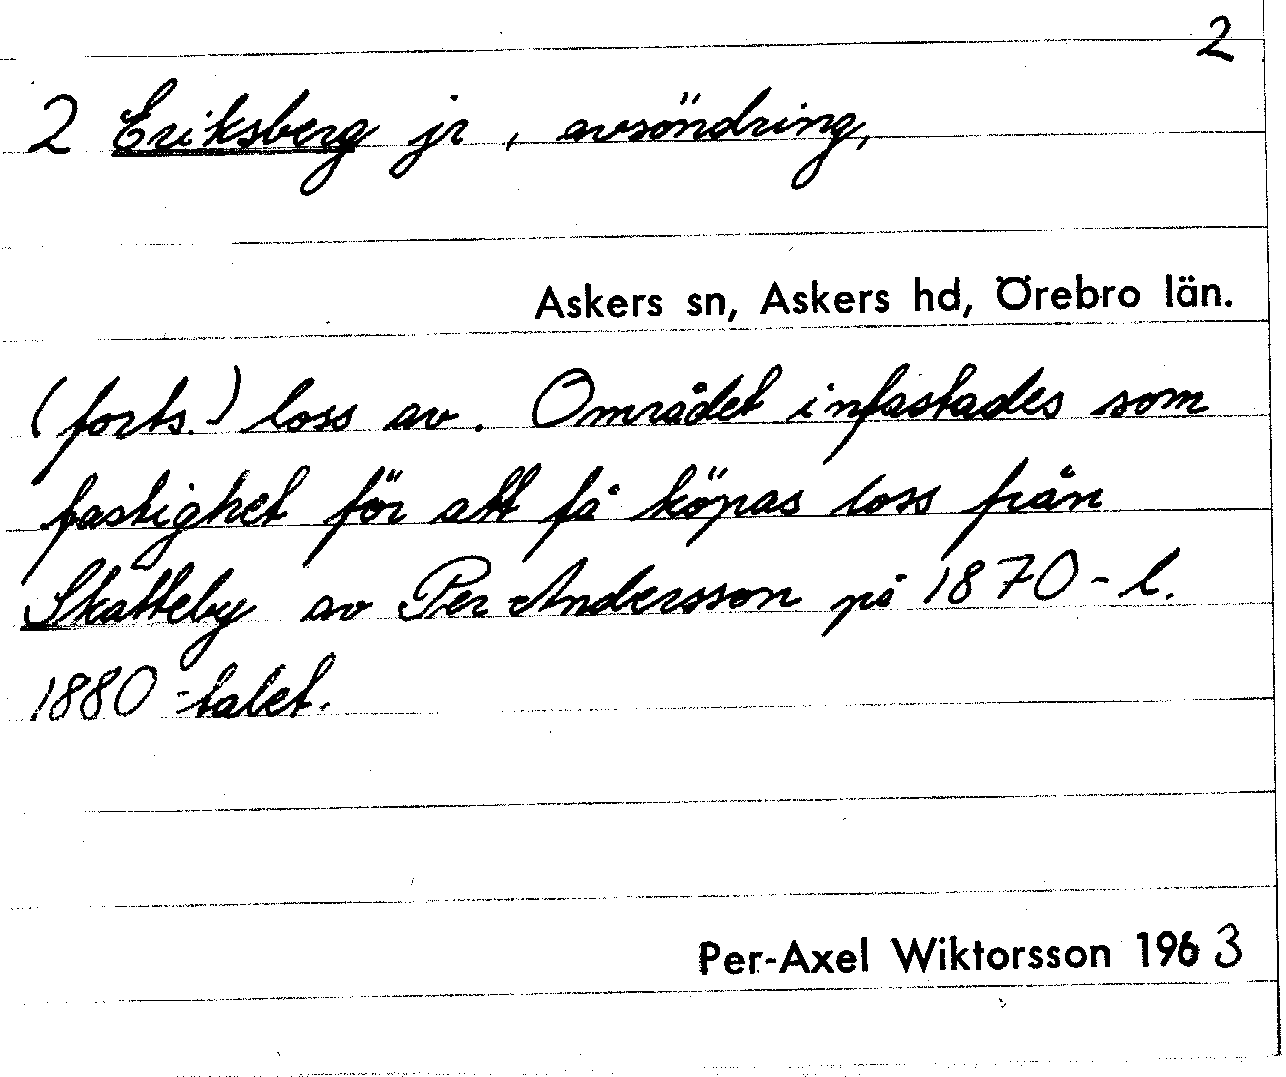 2
2 Eriksberg jr , avsöndring,
Askers sn, Askers hd, Örebro län.
(forts.) loss av. Området infastades som
fastighet för att få köpas loss från
Skätteby av Per Andersson på 1870- l.
1880-talet.
Per-Axel Wiktorsson 1963